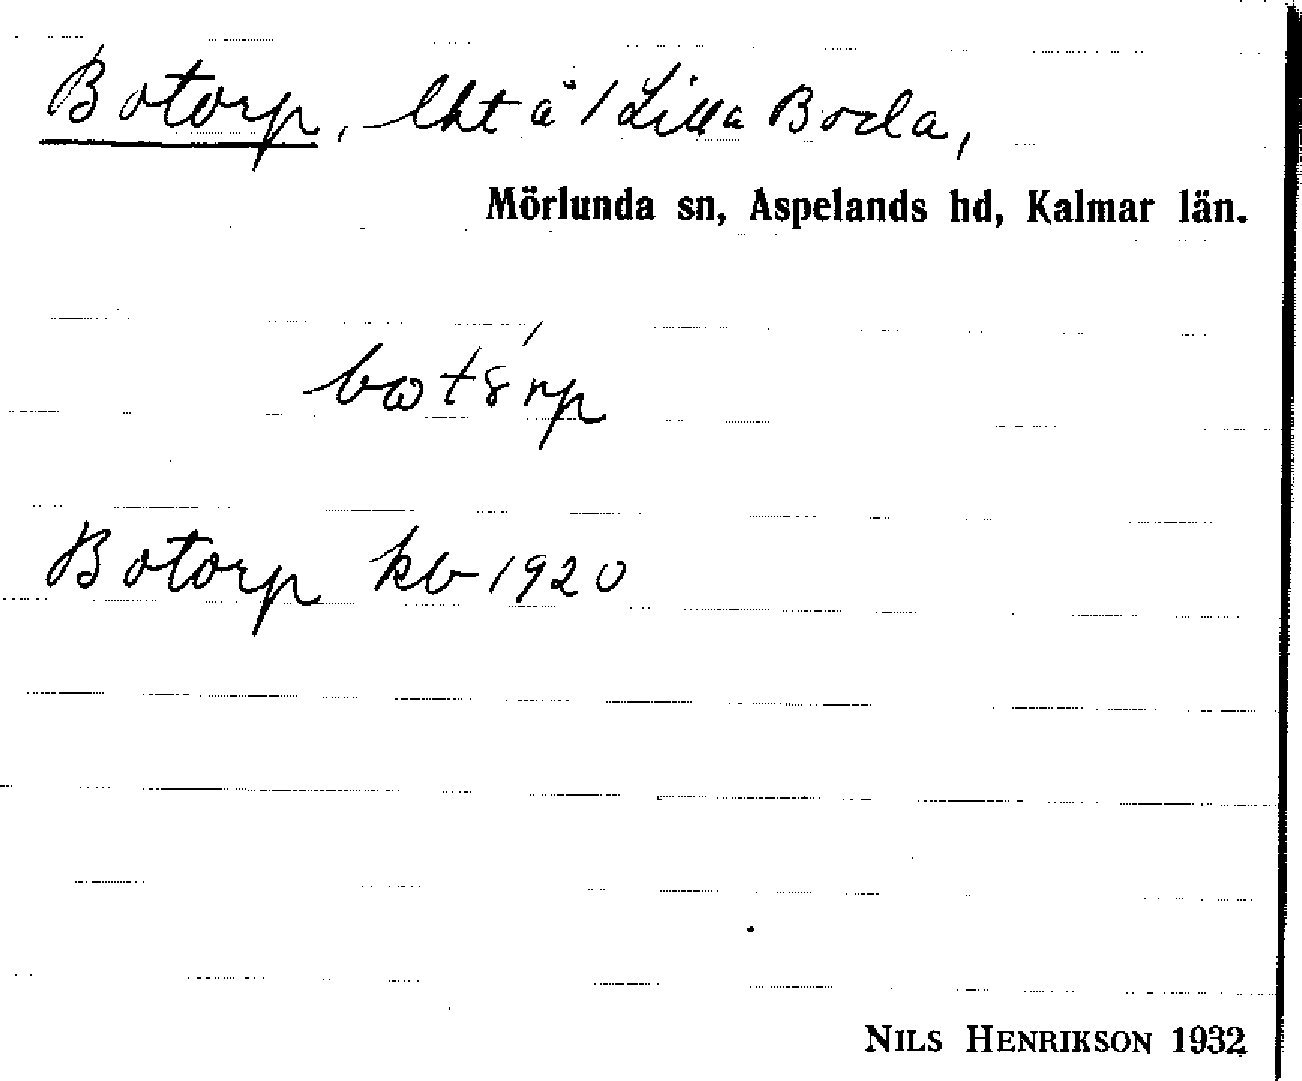 Botorp, lht å 1 Lilla Boda,
Mörlunda sn, Aspelands hd, Kalmar län.
Botorp kb 1920
NILS HENRIKSON 1932